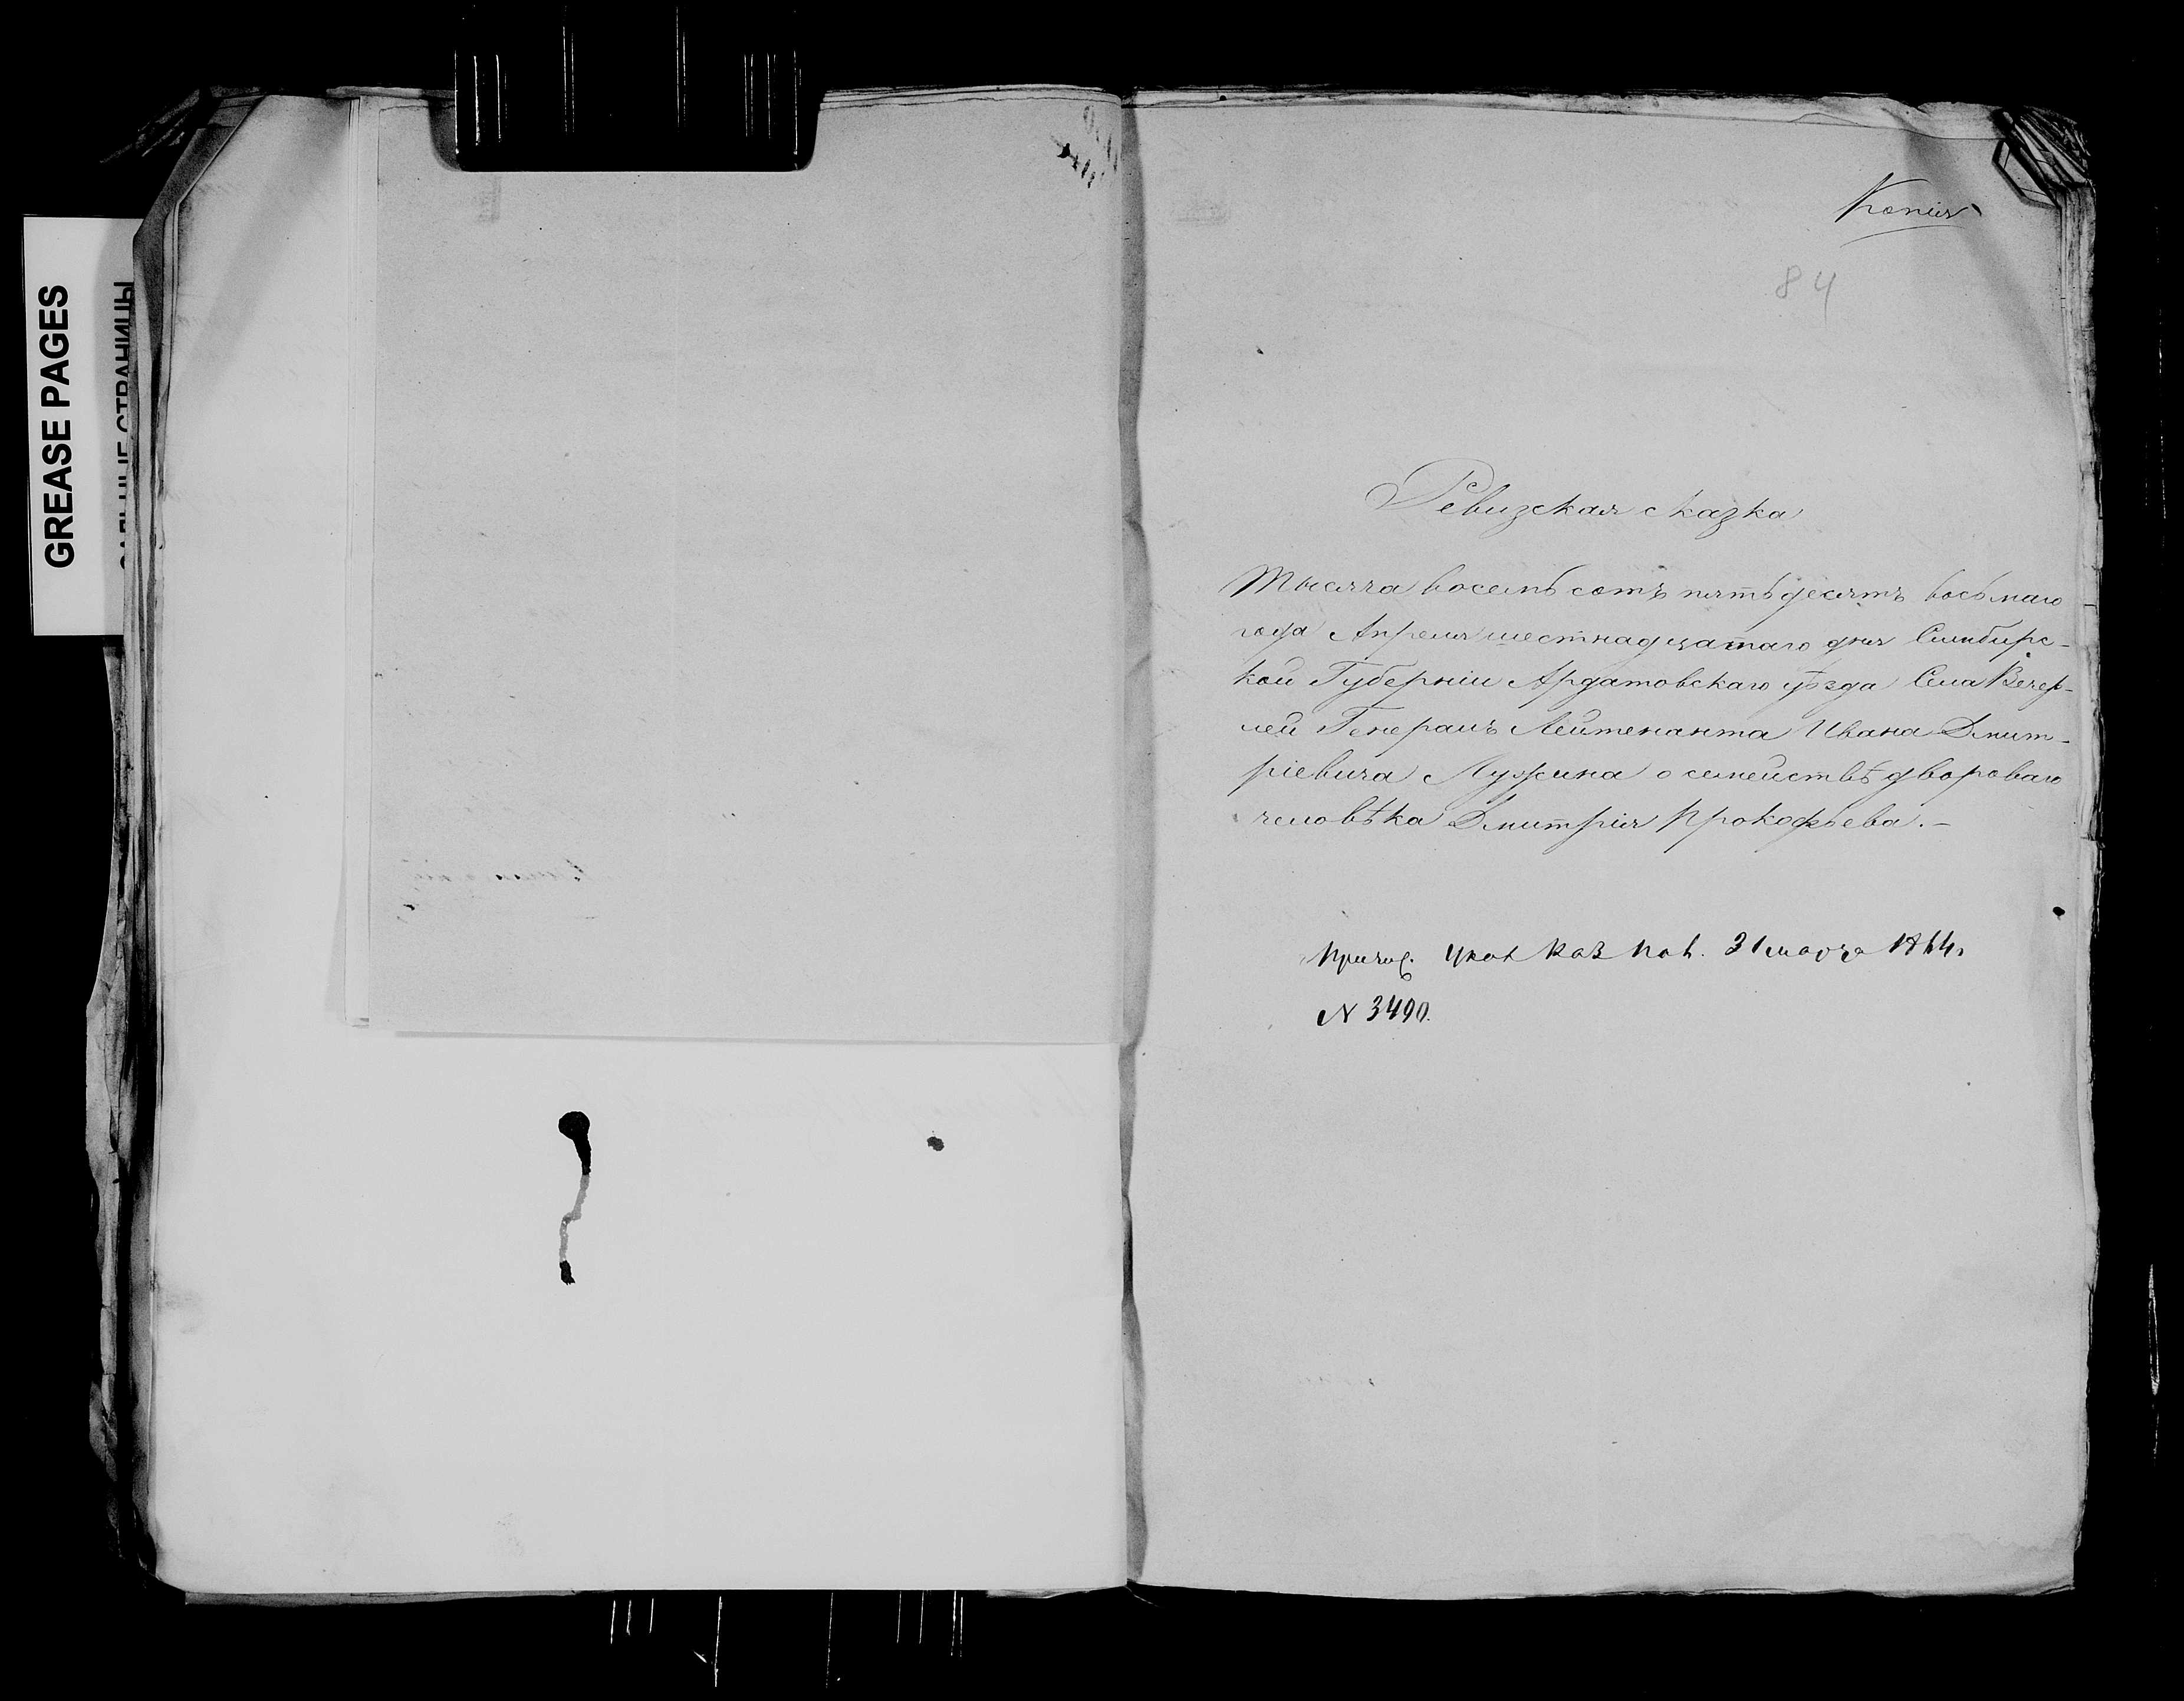 GREASE PAGES
Копія
84
Ревизская сказка
Тысяча восемь сотъ пятьдесятъ восьмаго
года Апреля шестнадцатаго дня Симбирс-
кой Губерніи Ардатовскаго уѣзда Села Вечер-
лей Генералъ Лейтенанта Ивана Дмит-
ріевича Лужина о семействѣ двороваго
человѣка Дмитрія Прокофьева.-
Каз Пал. 31 марта 1864
N 3490.